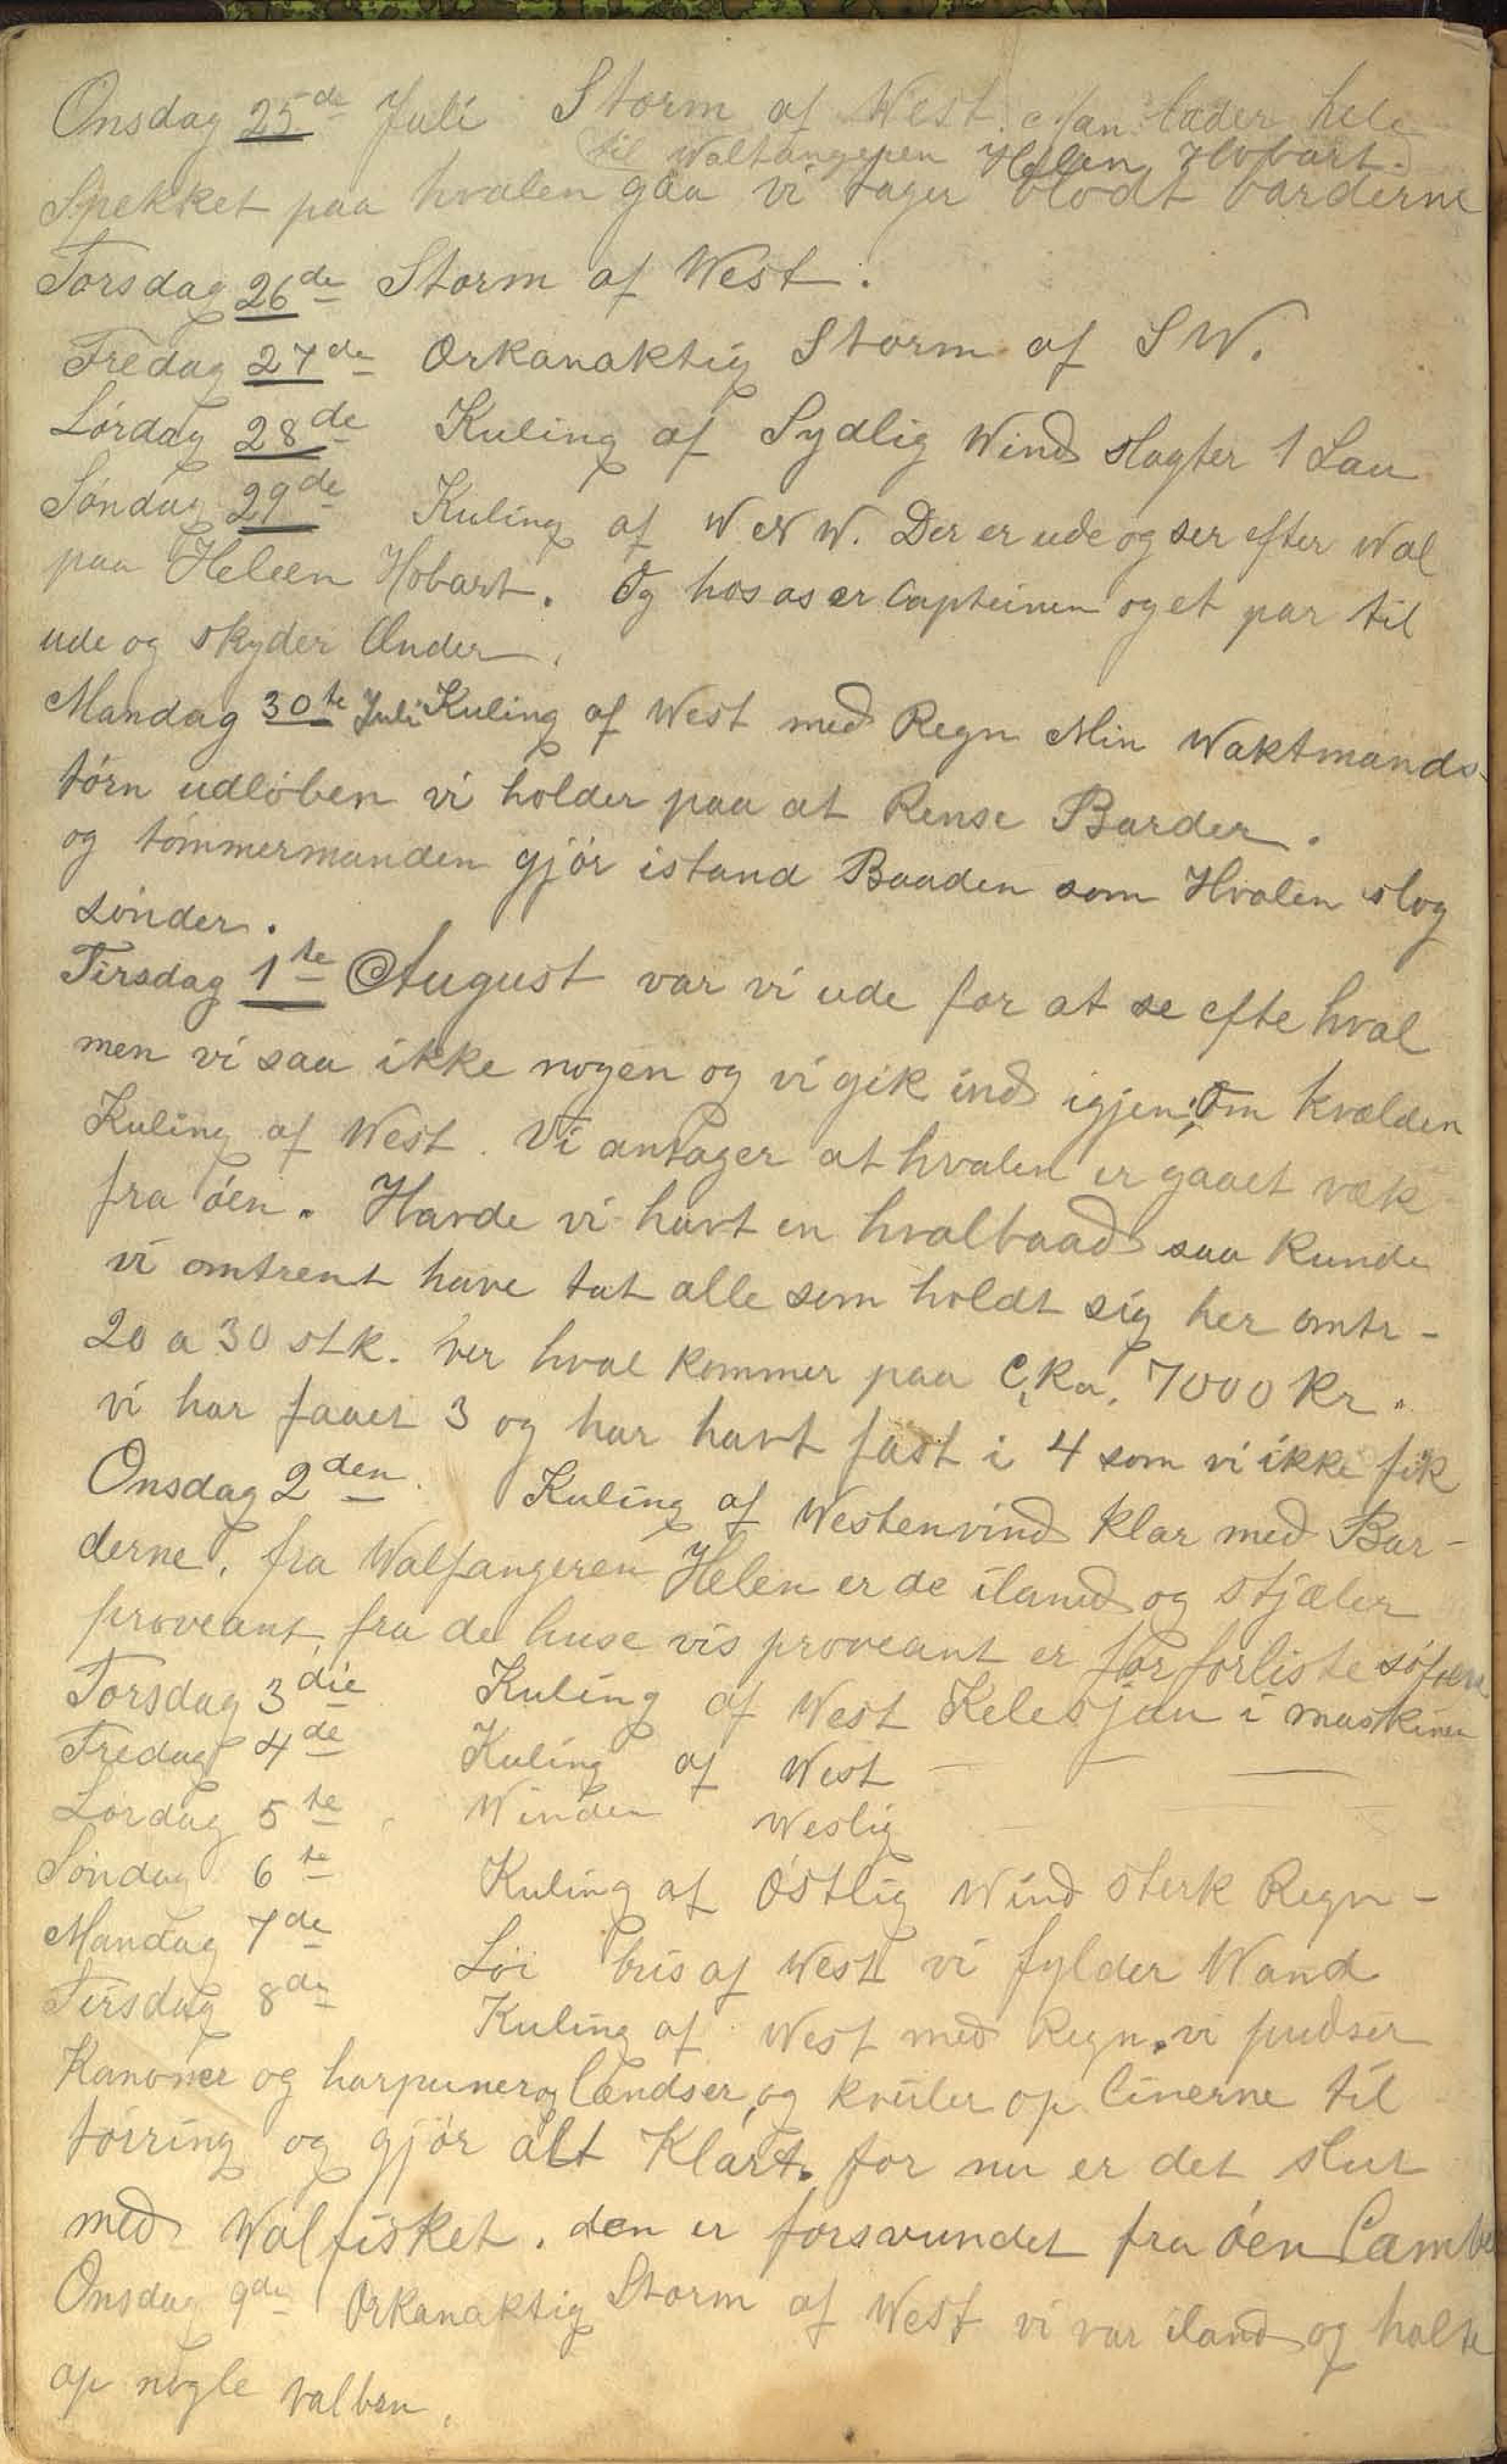 Onsdag 25de Juli Storm af West. Man lader hele
til Walfangeren Helen Hobart.
Spekket paa hvalen gaa vi tager blodt barderne
Torsdag 26de Storm af West.
Fredag 27de Orkanaktig Storm af SW.
Lørdag 28de Kuling af Sydlig Wind slagter 1 Sau
Søndag 29de Kuling af W N W. Der er ude og ser efter Wal
paa Heleen Hobart. Og hos os er Capteinen og et par til
ude og skyder Ænder.
Mandag 30te Juli Kuling af West med Regn Min Waktmands-
tørn udløben vi holder paa at Rense Barder.
og tømmermanden gjør istand Baaden som Hvalen slog
sønder.
Tirsdag 1te August var vi ude for at se efte hval
men vi saa ikke nogen og vi gik ind igjen; Om kvælden
Kuling af West. Vi antager at hvalen er gaaet væk
fra øen. Havde vi havt en hvalbaad saa kunde
vi omtrent have tat alle som holdt sig her omtr-
20 a 30 stk. hver hval kommer paa C,ka, 7000 Kr.
vi har faaet 3 og har havt fast i 4 som vi ikke fik
Onsdag 2den Kuling af Westenvind klar med Bar-
derne. fra Walfangeren Helen er de iland og stjæler
proveant fra de huse vis proveant er for forliste søfolk
Torsdag 3die Kuling af West Kelesjau i maskinen
Fredag 4de Kuling af West — — —
Lørdag 5te Winden Weslig
Søndag 6te Kuling af Østlig Wind sterk Regn -
Mandag 7de Løi bris af West vi fylder Wand
Tirsdag 8de Kuling af West med Regn. vi pudser
Kanoner og harpuner og lændser, og kveiler op linerne til
tørring og gjør alt Klart. for nu er det slut
med Walfisket. den er forsvundet fra øen Cambel
Onsdag 9de Orkanaktig Storm af West vi var iland og halte
op nogle valben.